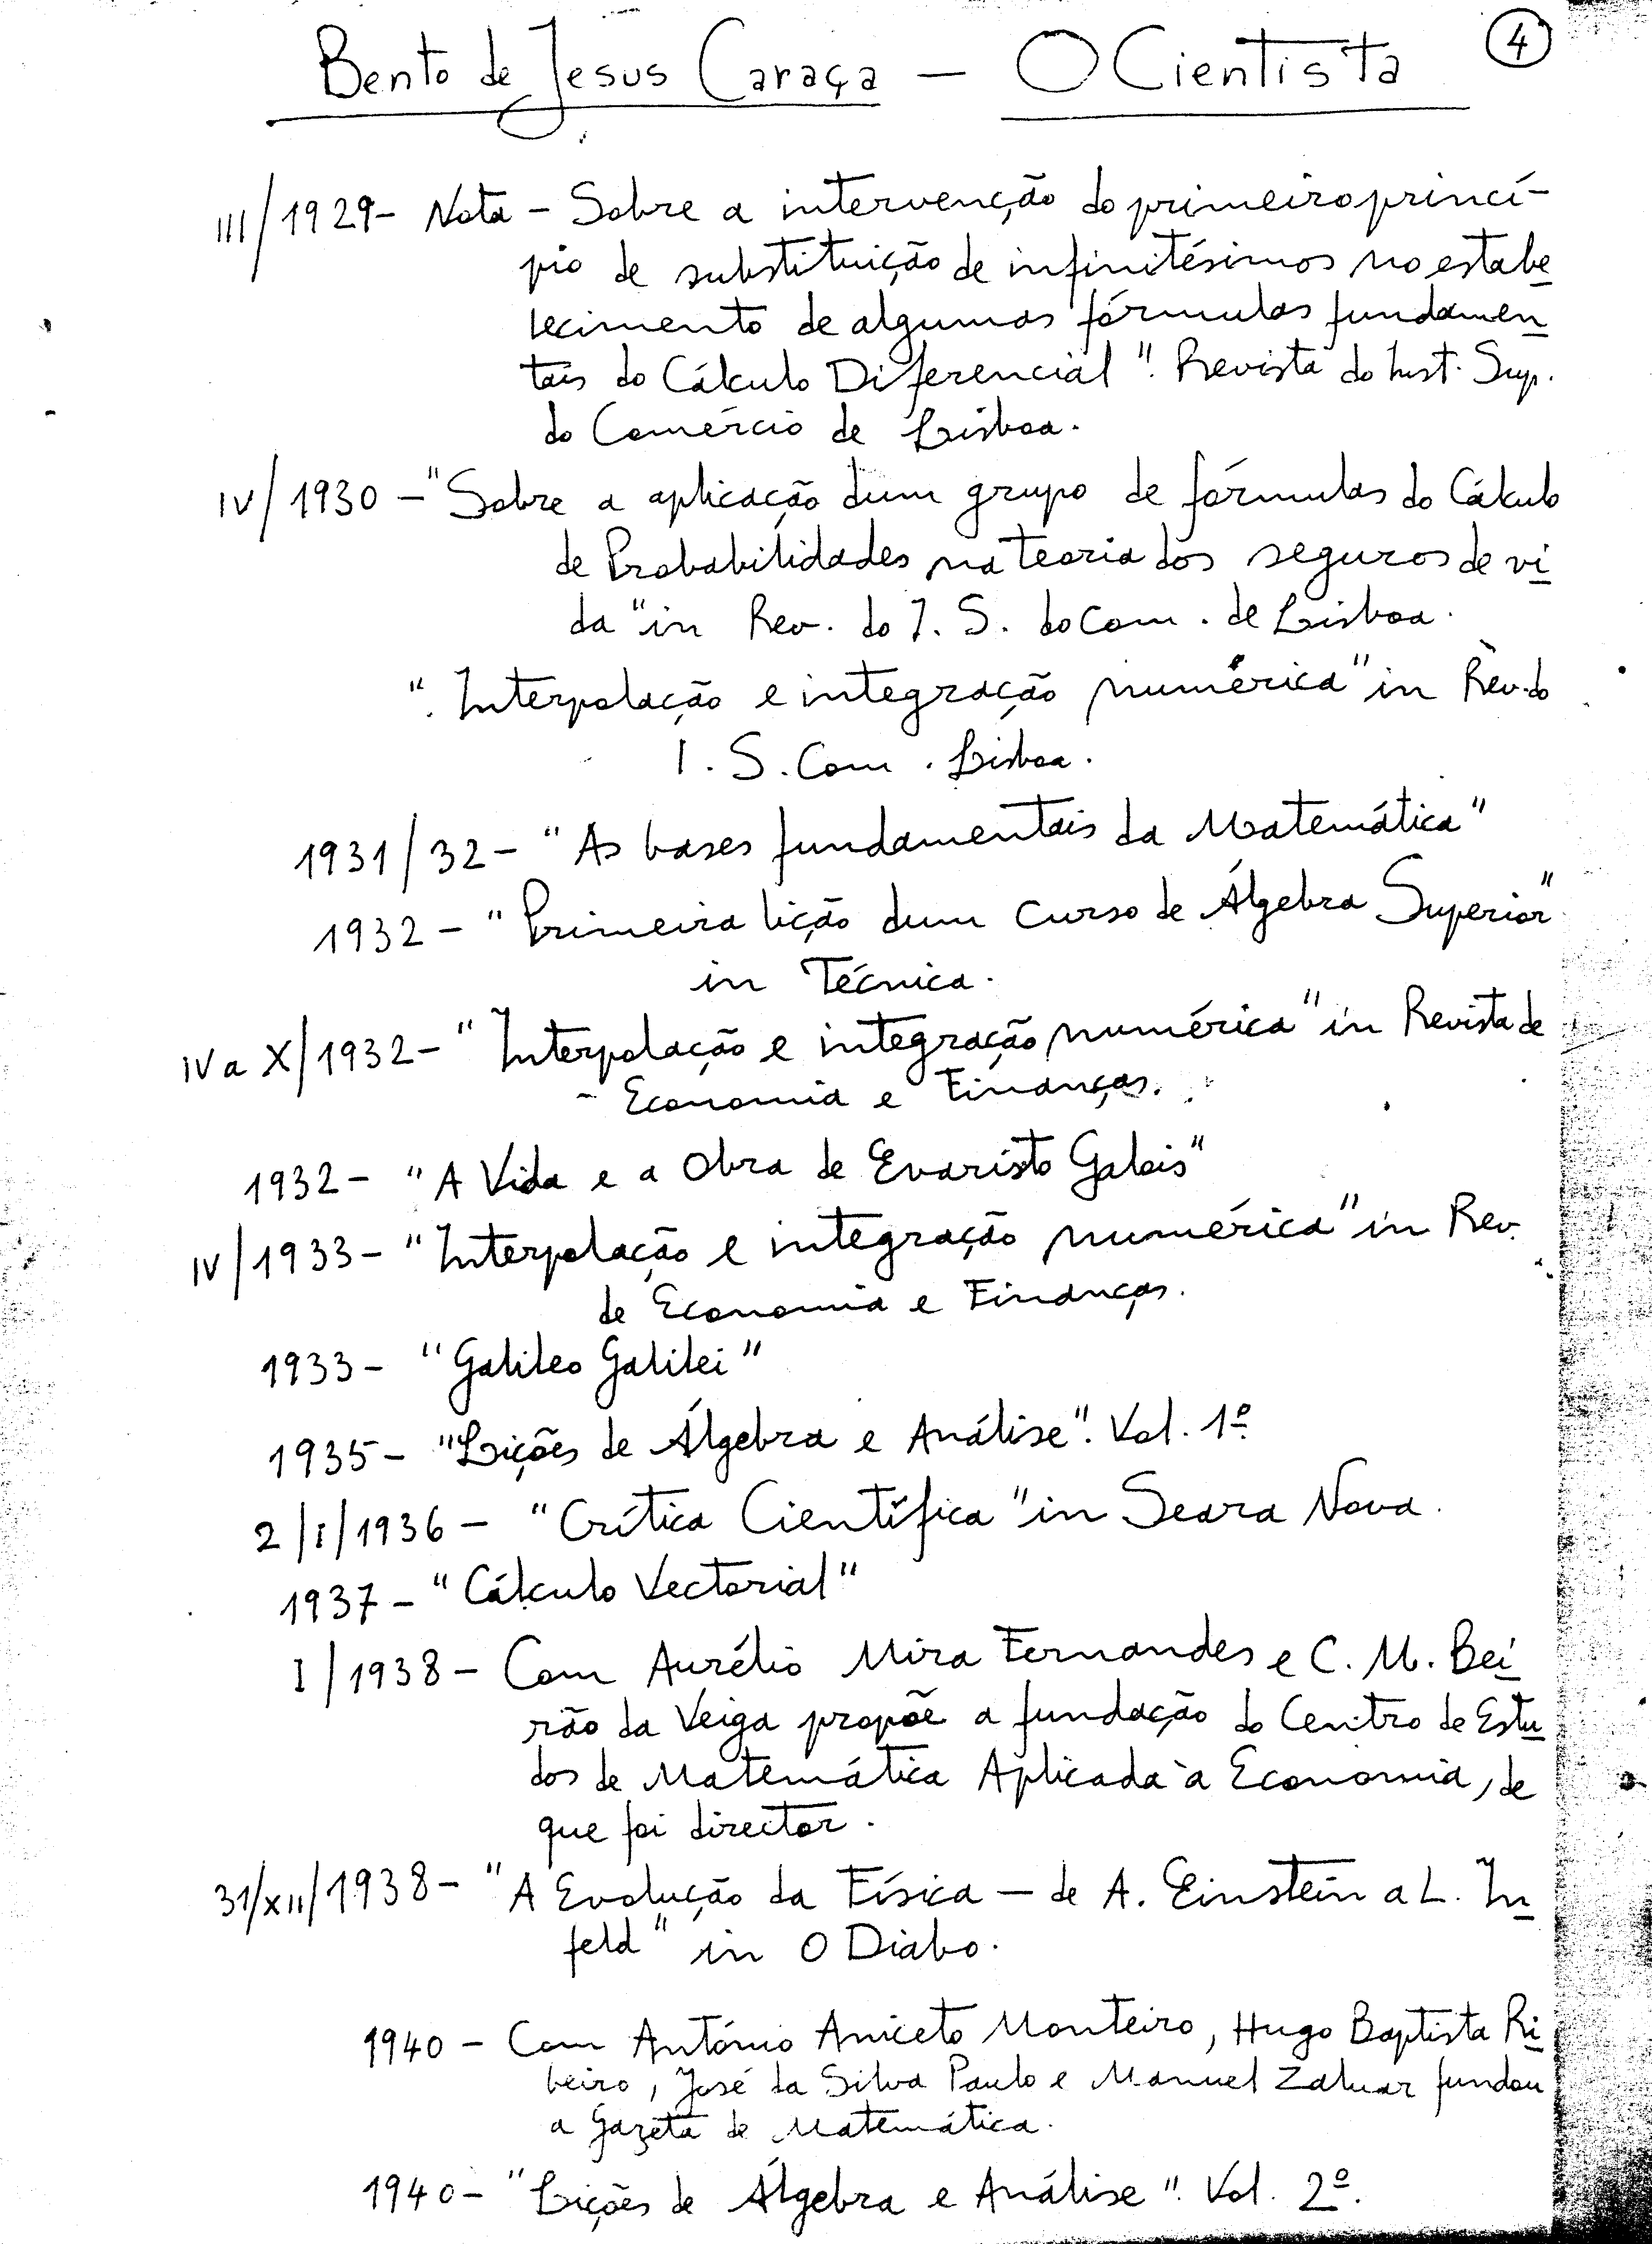 Bento de Jesus Caraça — O Cientista
4
III/1929- Nota - Sobre a intervenção do primeiro princí-
pio de substituição de infinitésimos no estabe
lecimento de algumas fórmulas fundamen
tais do Cálculo Diferencial". Revista do Inst. Sup.
do Comércio de Lisboa.
IV/1930 - "Sobre a aplicação dum grupo de fórmulas do Cálculo
de Probabilidades na teoria dos seguros de vi
da" in Rev. do I. S. do Com. de Lisboa.
". Interpolação e integração numérica" in Rev. do
I. S. Com. Lisboa.
1931/32- "As bases fundamentais da Matemática"
1932- "Primeira lição dum curso de Álgebra Superior"
in Técnica.
IV a X/1932- "Interpolação e integração numérica" in Revista de
Economia e Finanças.
1932- "A Vida e a Obra de Evaristo Galois"
IV/1933- "Interpolação e integração numérica" in Rev.
de Economia e Finanças.
1933- "Galileo Galilei"
1935- "Lições de Álgebra e Análise". Vol. 1º
2/I/1936 - "Crítica Científica" in Seara Nova.
1937- "Cálculo Vectorial"
I/1938- Com Aurélio Mira Fernandes e C. M. Bei
rão da Veiga propõe a fundação do Centro de Estu
dos de Matemática Aplicada à Economia, de
que foi director.
31/XII/1938- "A Evolução da Física - de A. Einstein a L. In
feld" in O Diabo.
1940 - Com António Aniceto Monteiro, Hugo Baptista Ri
beiro, José da Silva Paulo e Manuel Zaluar fundou
a Gazeta de Matemática.
1940- "Lições de Álgebra e Análise". Vol. 2º.